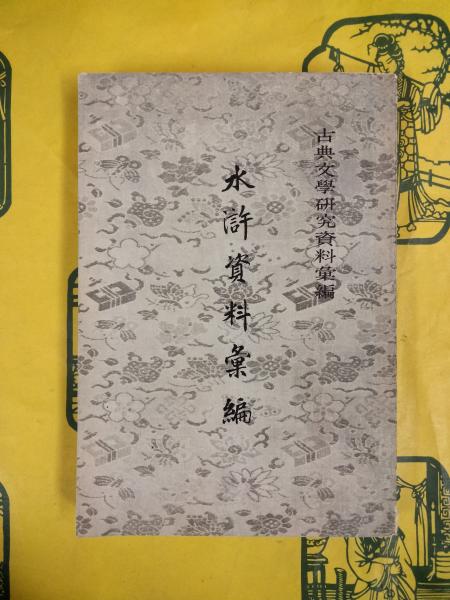 古典文學研究資料彙編
水滸資料彙編